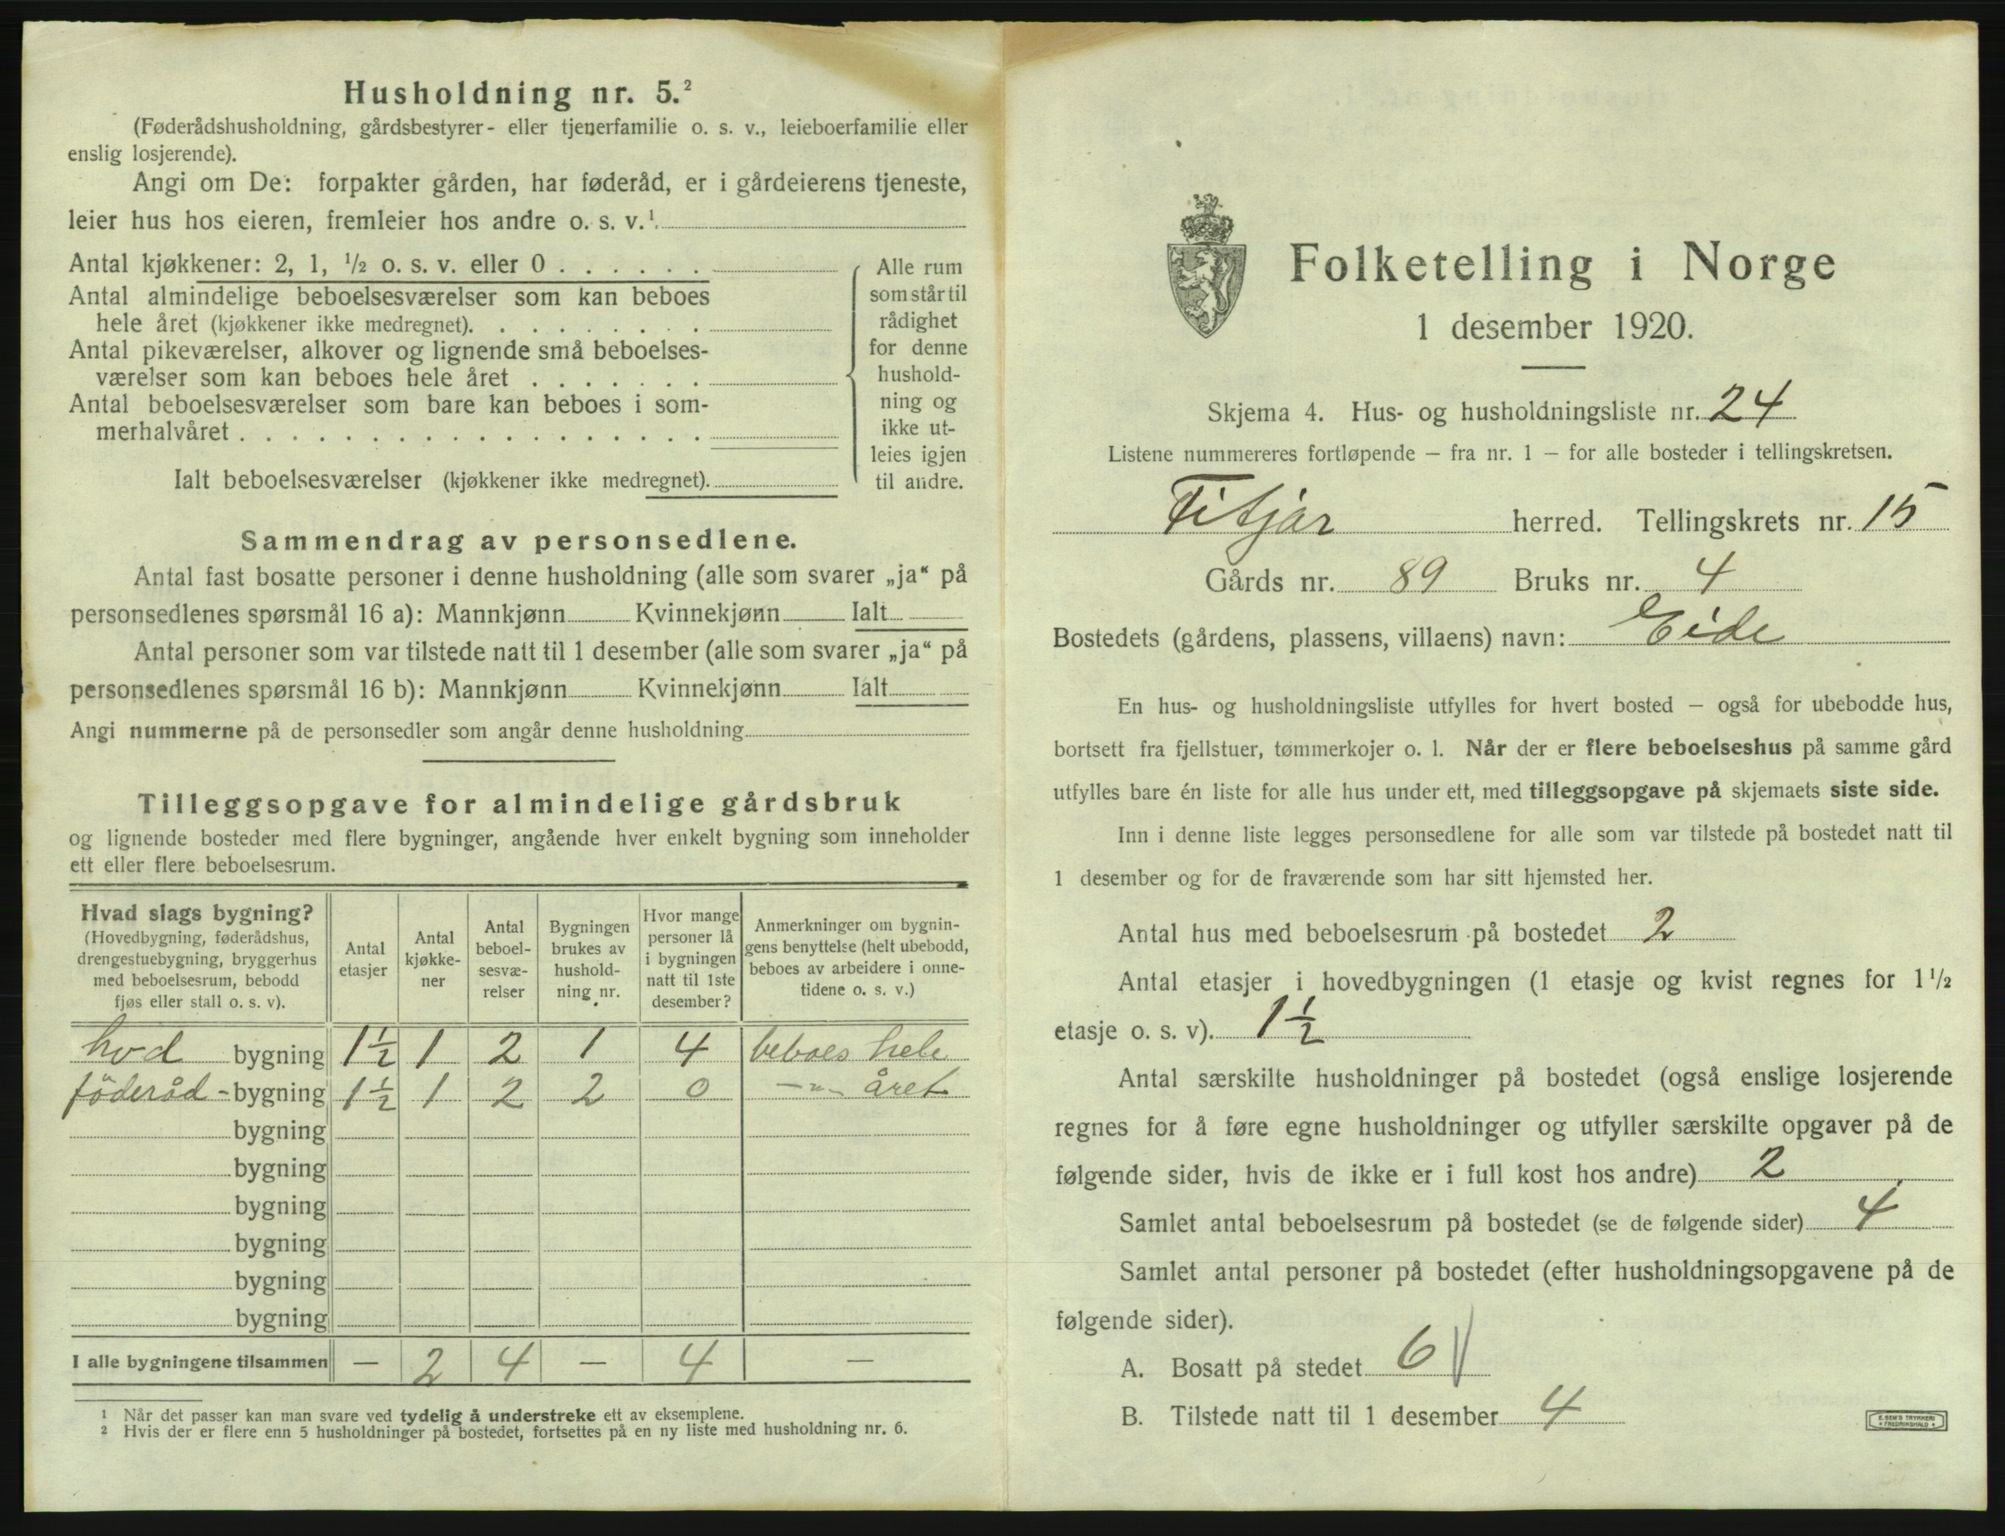 Husholdning nr. 5.²
(Føderådshusholdning, gårdsbestyrer- eller tjenerfamilie o. s. v., leieboerfamilie eller
enslig losjerende).
Angi om De: forpakter gården, har føderåd, er i gårdeierens tjeneste,
leier hus hos eieren, fremleier hos andre o. s. v.¹
Antal kjøkkener: 2, 1, ½ o. s. v. eller 0 . . . . . .
Antal almindelige beboelsesværelser som kan beboes
hele året (kjøkkener ikke medregnet). . . . . . . . .
Antal pikeværelser, alkover og lignende små beboelses-
værelser som kan beboes hele året . . . . . . .
Antal beboelsesværelser som bare kan beboes i som-
merhalvåret . . . . . . . . . . . . . . . . . .
Alle rum
som står til
rådighet
for denne
hushold-
ning og
ikke ut-
leies igjen
til andre.
Ialt beboelsesværelser (kjøkkener ikke medregnet).
Sammendrag av personsedlene.
Antal fast bosatte personer i denne husholdning (alle som svarer „ja“ på
personsedlenes spørsmål 16 a): Mannkjønn Kvinnekjønn Ialt
Antal personer som var tilstede natt til 1 desember (alle som svarer „ja“ på
personsedlenes spørsmål 16 b): Mannkjønn Kvinnekjønn Ialt
Angi nummerne på de personsedler som angår denne husholdning
Tilleggsopgave for almindelige gårdsbruk
og lignende bosteder med flere bygninger, angående hver enkelt bygning som inneholder
ett eller flere beboelsesrum.
Hvad slags bygning?
(Hovedbygning, føderådshus,
drengestuebygning, bryggerhus
med beboelsesrum, bebodd
fjøs eller stall o. s. v).
Antal
etasjer
Antal
kjøkke-
ner
Antal
beboel-
sesvæ-
relser
Bygningen
brukes av
hushold-
ning nr.
Hvor mange
personer lå
i bygningen
natt til 1ste
desember?
Anmerkninger om bygnin-
gens benyttelse (helt ubebodd,
beboes av arbeidere i onne-
tidene o. s. v.)
hvd bygning 1½ 1 2 1 4 beboes hele
föderåd- bygning 1½ 1 2 2 0 -"- året
bygning
bygning
bygning
bygning
bygning
bygning
I alle bygningene tilsammen — 2 4 — 4 —
¹ Når det passer kan man svare ved tydelig å understreke ett av eksemplene.
² Hvis der er flere enn 5 husholdninger på bostedet, fortsettes på en ny liste med husholdning nr. 6.
Folketelling i Norge
1 desember 1920.
Skjema 4. Hus- og husholdningsliste nr. 24
Listene nummereres fortløpende — fra nr. 1 — for alle bosteder i tellingskretsen.
Fitjar herred. Tellingskrets nr. 15
Gårds nr. 89 Bruks nr. 4
Bostedets (gårdens, plassens, villaens) navn: Eide
En hus- og husholdningsliste utfylles for hvert bosted — også for ubebodde hus,
bortsett fra fjellstuer, tømmerkojer o. l. Når der er flere beboelseshus på samme gård
utfylles bare én liste for alle hus under ett, med tilleggsopgave på skjemaets siste side.
Inn i denne liste legges personsedlene for alle som var tilstede på bostedet natt til
1 desember og for de fraværende som har sitt hjemsted her.
Antal hus med beboelsesrum på bostedet 2
Antal etasjer i hovedbygningen (1 etasje og kvist regnes for 1½
etasje o. s. v). 1½
Antal særskilte husholdninger på bostedet (også enslige losjerende
regnes for å føre egne husholdninger og utfyller særskilte opgaver på de
følgende sider, hvis de ikke er i full kost hos andre) 2
Samlet antal beboelsesrum på bostedet (se de følgende sider) 4
Samlet antal personer på bostedet (efter husholdningsopgavene på de
følgende sider).
A. Bosatt på stedet 6
B. Tilstede natt til 1 desember 4
E. SEM'S TRYKKERI
FREDRIKSHALD